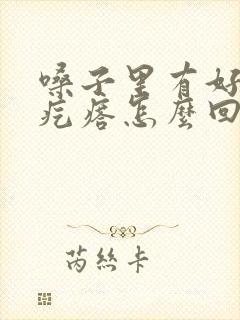 嗓子里有好
疙瘩怎麼回
芮丝卡